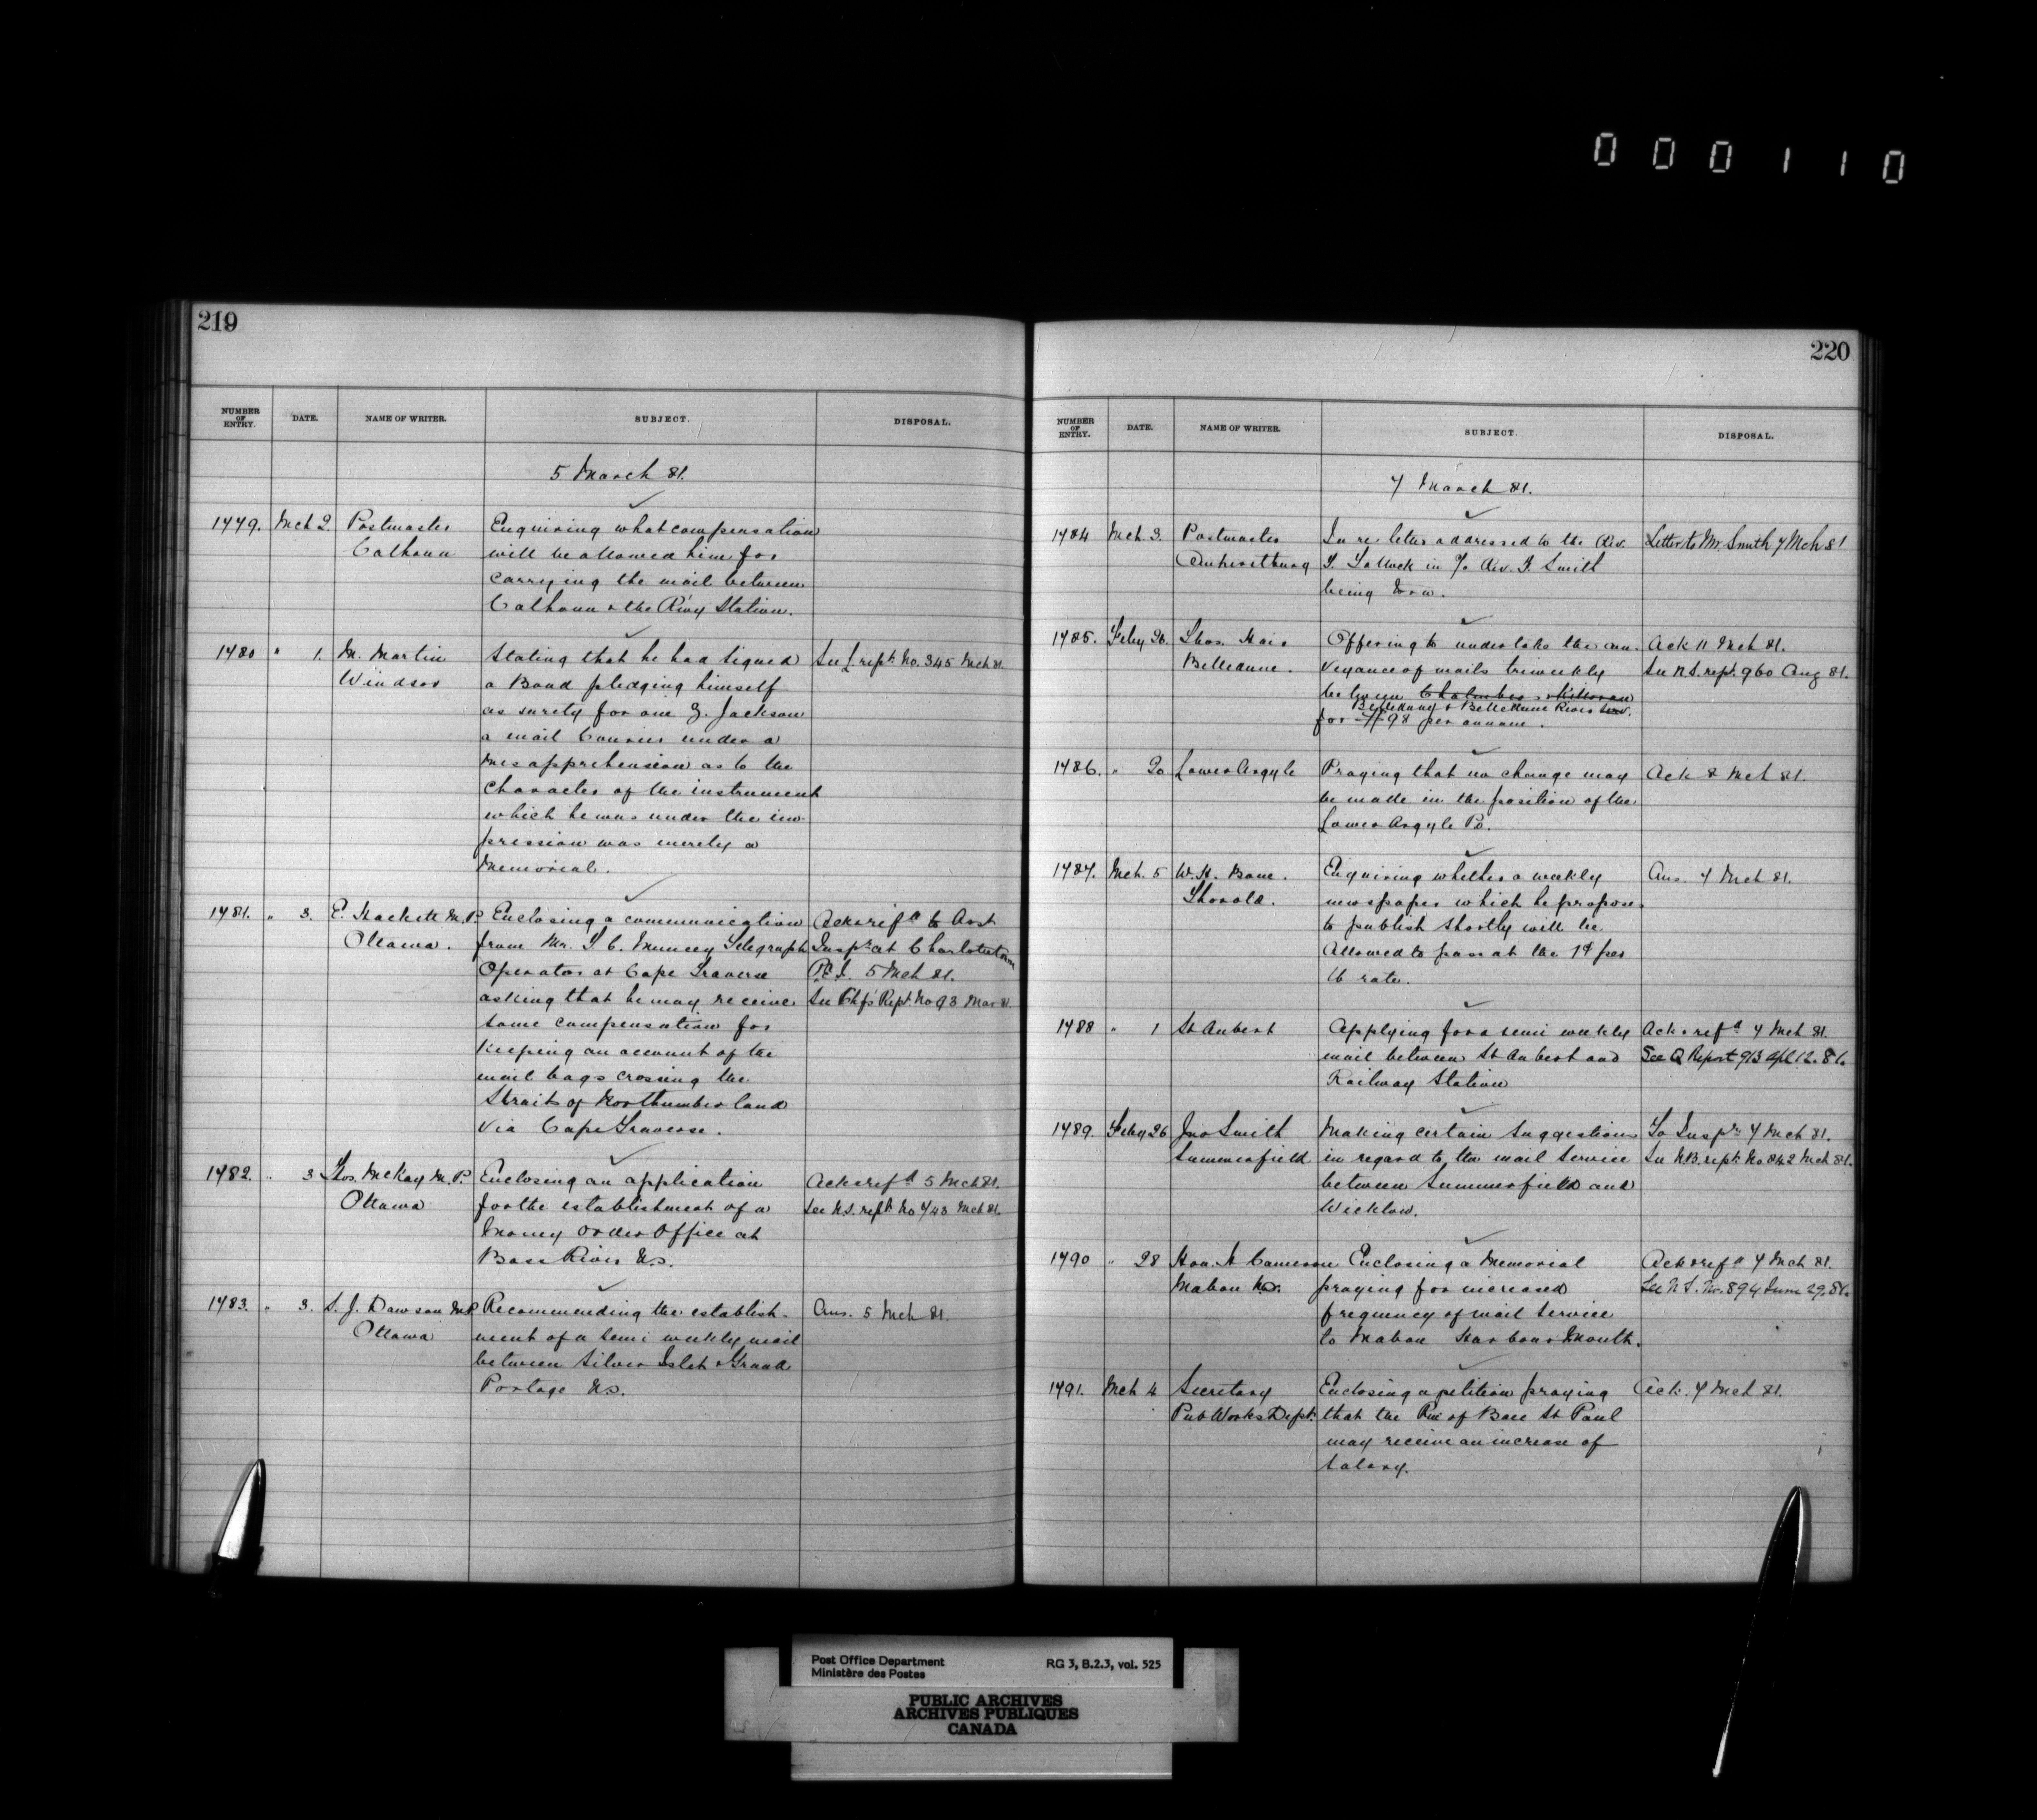 000110
219
NUMBER OF ENTRY. DATE. NAME OF WRITER. SUBJECT. DISPOSAL.
5 March 81.
1479. Mch 2. Postmaster Enquiring what compensation
Calhoun will be allowed him for
carrying the mail between
Calhoun & the Rwy Station.
1480 " 1. M. Martin Stating that he had signed See L rept. No. 345 Mch 81.
Windsor a Bond pledging himself
as surety for one G. Jackson
a mail Courier under a
misapprehension as to the
character of the instrument
which he was under the im-
pression was merely a
Memorial.
1481. " 3. E. Hackett M.P. Enclosing a communication Ack & refd to Asst
Ottawa. from Mr. T. C. Muncey Telegraph Inspr at Charlottetown
Operator at Cape Traverse P.E.I. 5 Mch 81.
asking that he may receive See Chfs Rept. No 93 Mar 81.
some compensation for
keeping an account of the
mail bags crossing the
Strait of Northumberland
via Cape Traverse.
1482. " 3 Thos. McKay M.P. Enclosing an application Ack & refd 5 Mch 81.
Ottawa for the establishment of a See N.S. rept. No 743 Mch 81.
Money Order Office at
Bass River N.S.
1483. " 3. S. J. Dawson M.P. Recommending the establish- Ans. 5 Mch 81.
Ottawa ment of a semi weekly mail
between Silver Islet & Grand
Portage U.S.
220
NUMBER OF ENTRY. DATE. NAME OF WRITER. SUBJECT. DISPOSAL.
7 March 81.
1484 Mch. 3. Postmaster In re letter addressed to the Rev. Letter to Mr. Smith 7 Mch 81
Amherstburg T. Tallack in c/o Rev. T. Smith
being
1485. Feby 26. Thos. Hair Offering to undertake the con- Ack 11 Mch 81.
Belledune. veyance of mails triweekly See N.S. rept. 960 Aug 81.
between
Belledune & Belledune River
for $98 per annum.
1486. " 20 Lower Argyle Praying that no change may Ack 8 Mch 81.
be made in the position of the
Lower Argyle P.O.
1487. Mch. 5 W. H. Bone. Enquiring whether a weekly Ans. 7 Mch 81.
Thorold. newspaper which he proposes
to publish shortly will be
allowed to pass at the 1¢ per
lb rate.
1488 " 1 St Aubert Applying for a semi weekly Ack & refd 7 Mch 81.
mail between St Aubert and See Q Report 913 Apl 12. 81.
Railway Station
1489. Feby 26 Jno Smith Making certain suggestions To Inspr 7 Mch 81.
Summerfield in regard to the mail service See N.B. rept. No 842 Mch 81.
between Summerfield and
Wicklow.
1490 " 28 Hon. A Cameron Enclosing a Memorial Ack & refd 7 Mch 81.
Mabou N.S. praying for increased See N.S. No. 894 June 29. 81.
frequency of mail service
to Mabou Harbour Mouth.
1491. Mch 4 Secretary Enclosing a petition praying Ack. 7 Mch 81.
Pub Works Dept. that the Pm of Baie St Paul
may receive an increase of
salary.
Post Office Department RG 3, B.2.3, vol. 525
Ministère des Postes
PUBLIC ARCHIVES
ARCHIVES PUBLIQUES
CANADA